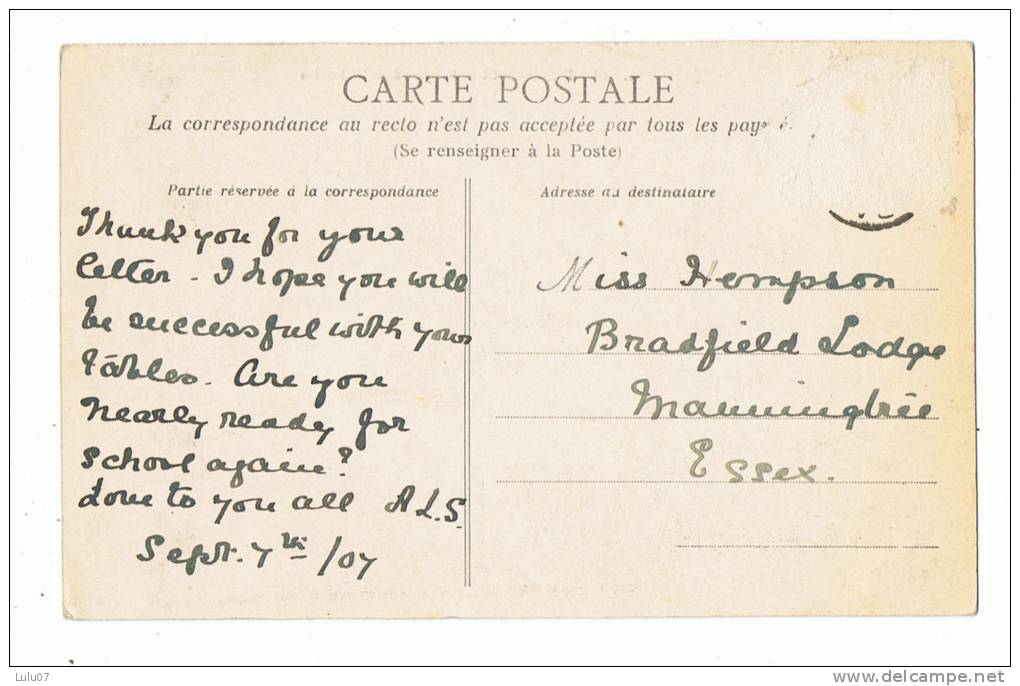 CARTE POSTALE
La correspondance au recto n'est pas acceptée par tous les pays é
(Se renseigner à la Poste)
Partie réservée à la correspondance
Adresse du destinataire
Thank you for your
letter - I hope you will
be successful with your
Tables. Are you
nearly ready for
school again?
Love to you all A.L.S.
Sept. 7th /07
Miss Hempson
Bradfield Lodge
Manningtree
Essex.
Lulu07
www.delcampe.net